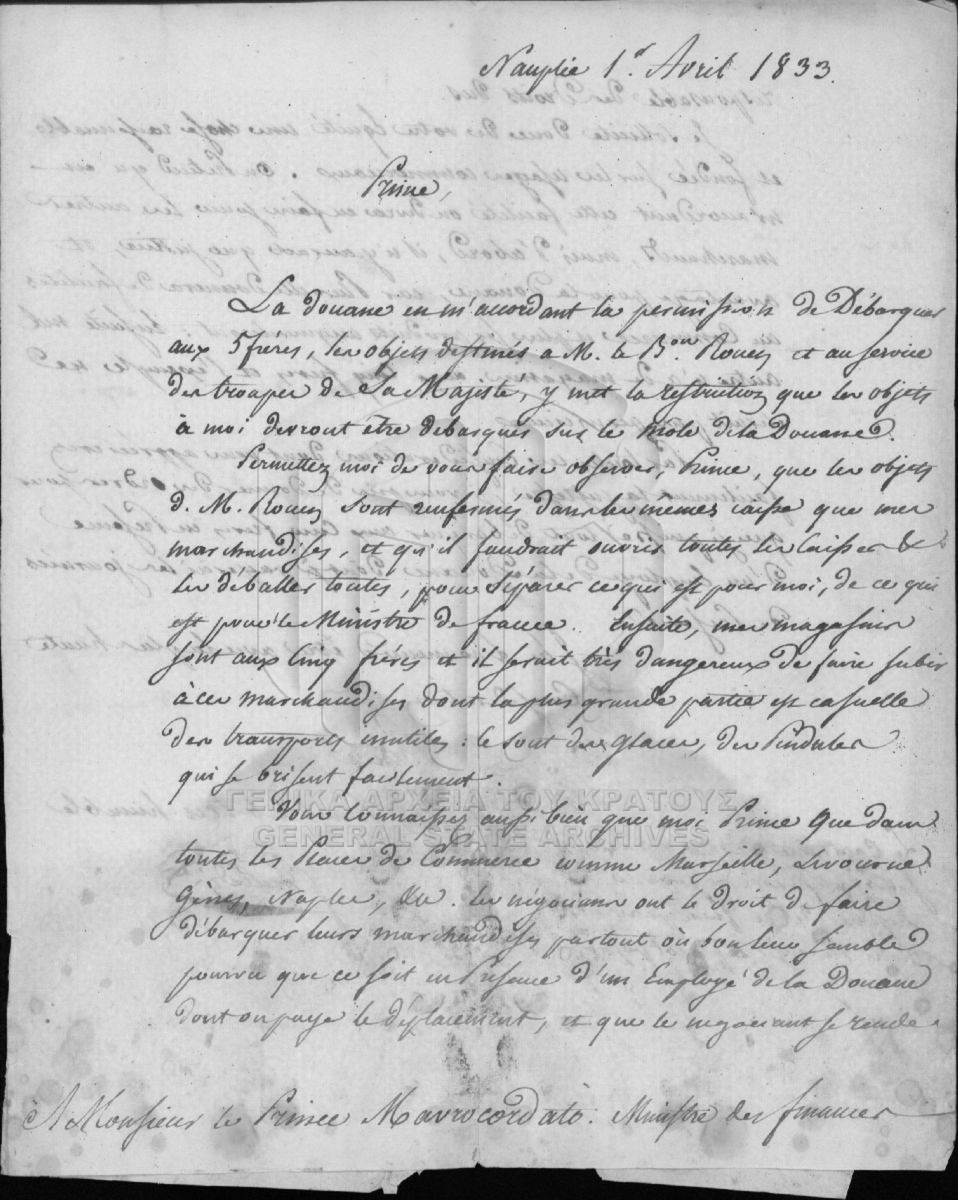 Nauplie 1.r Avril 1833.
Prince,
La douane en m'accordant la permission de Débarquer
aux 5 fréres, les objets destinés a M. le B.on Rouen et au service
des troupes de Sa Majesté, y met la restriction que les objets
à moi devront être debarqués sur le Mole de la Douane.
Permettez moi de vous faire observer, Prince, que les objets
d. M. Rouen sont renfermés dans les mêmes caisse que mes
marchandises, et qu'il faudrait ouvrir toutes les Caisses &
les deballer toutes, pour séparer ce qui est pour moi, de ce qui
est pour le Ministre de france. Ensuite, mes magasins
sont aux Cinq fréres et il serait très dangereux de faire subir
à ces marchandises dont la plus grande partie est casuelle
des transports inutiles: ce sont des Glaces, des Pendules
qui se brisent facilement.
ΓΕΝΙΚΑ ΑΡΧΕΙΑ ΤΟΥ ΚΡΑΤΟΥΣ
Vous connaissez aussi bien que moi Prince que dans
GENERAL STATE ARCHIVES
toutes les Places de Commerce comme Marseille, Livourne
Gênes, Naples, &a. les négocians ont le droit de faire
débarquer leurs marchandises partout où bon leur semble
pourvu que ce soit en Présence d'un Employé de la Douane
dont on paye le déplacement, et que le negociant se rende
A Monsieur le Prince Mavrocordato. Ministre des finances